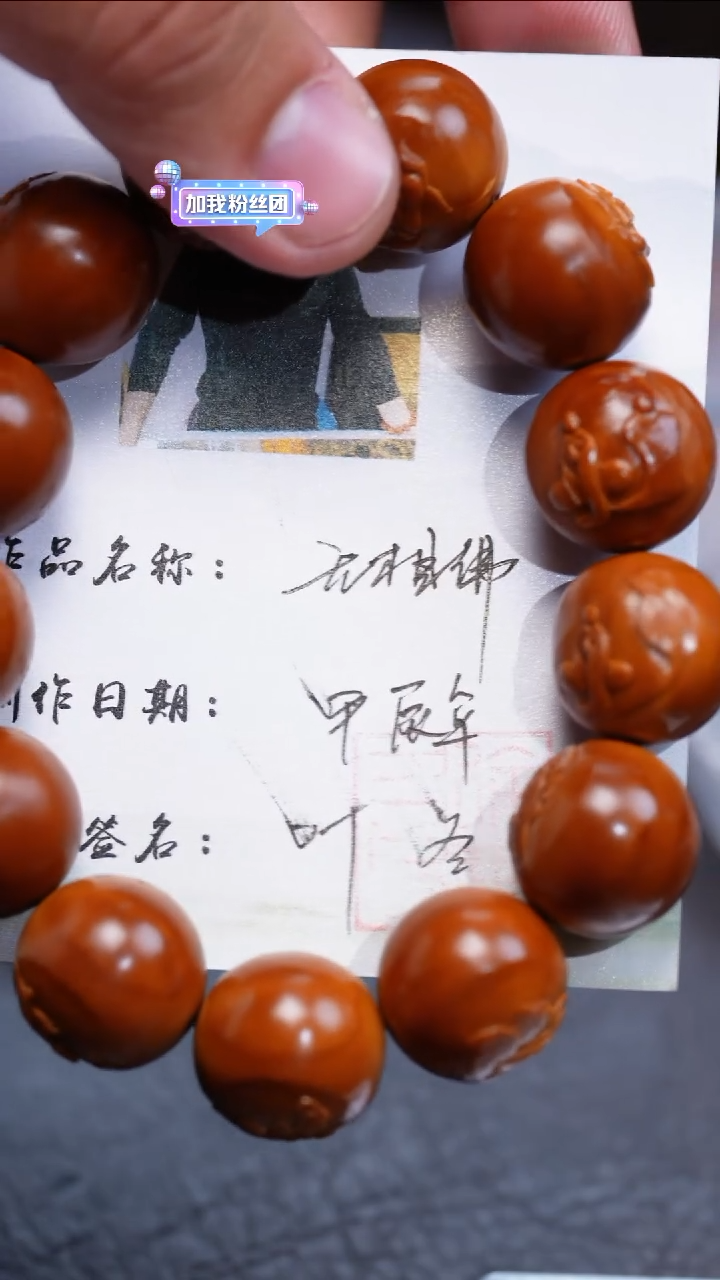 加我粉丝团
作品名称：无相佛
制作日期：甲辰年
签名：叶冬